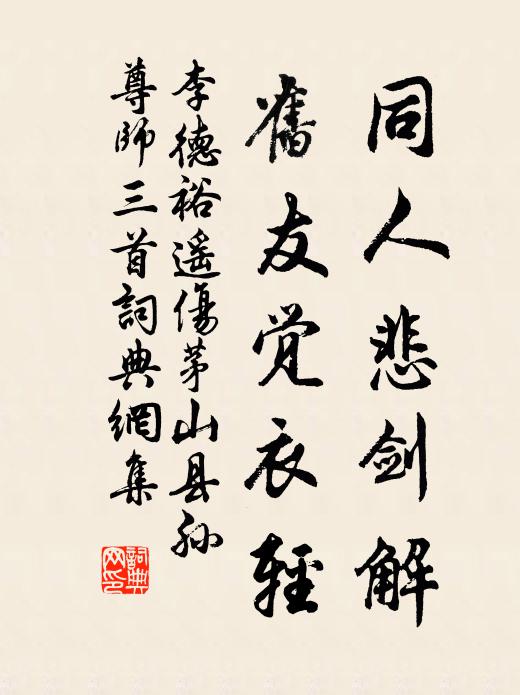 同人悲剑解
舊友觉衣輕
李德裕遥傷茅山县孙
尊師三首詞典網集
詞典网印